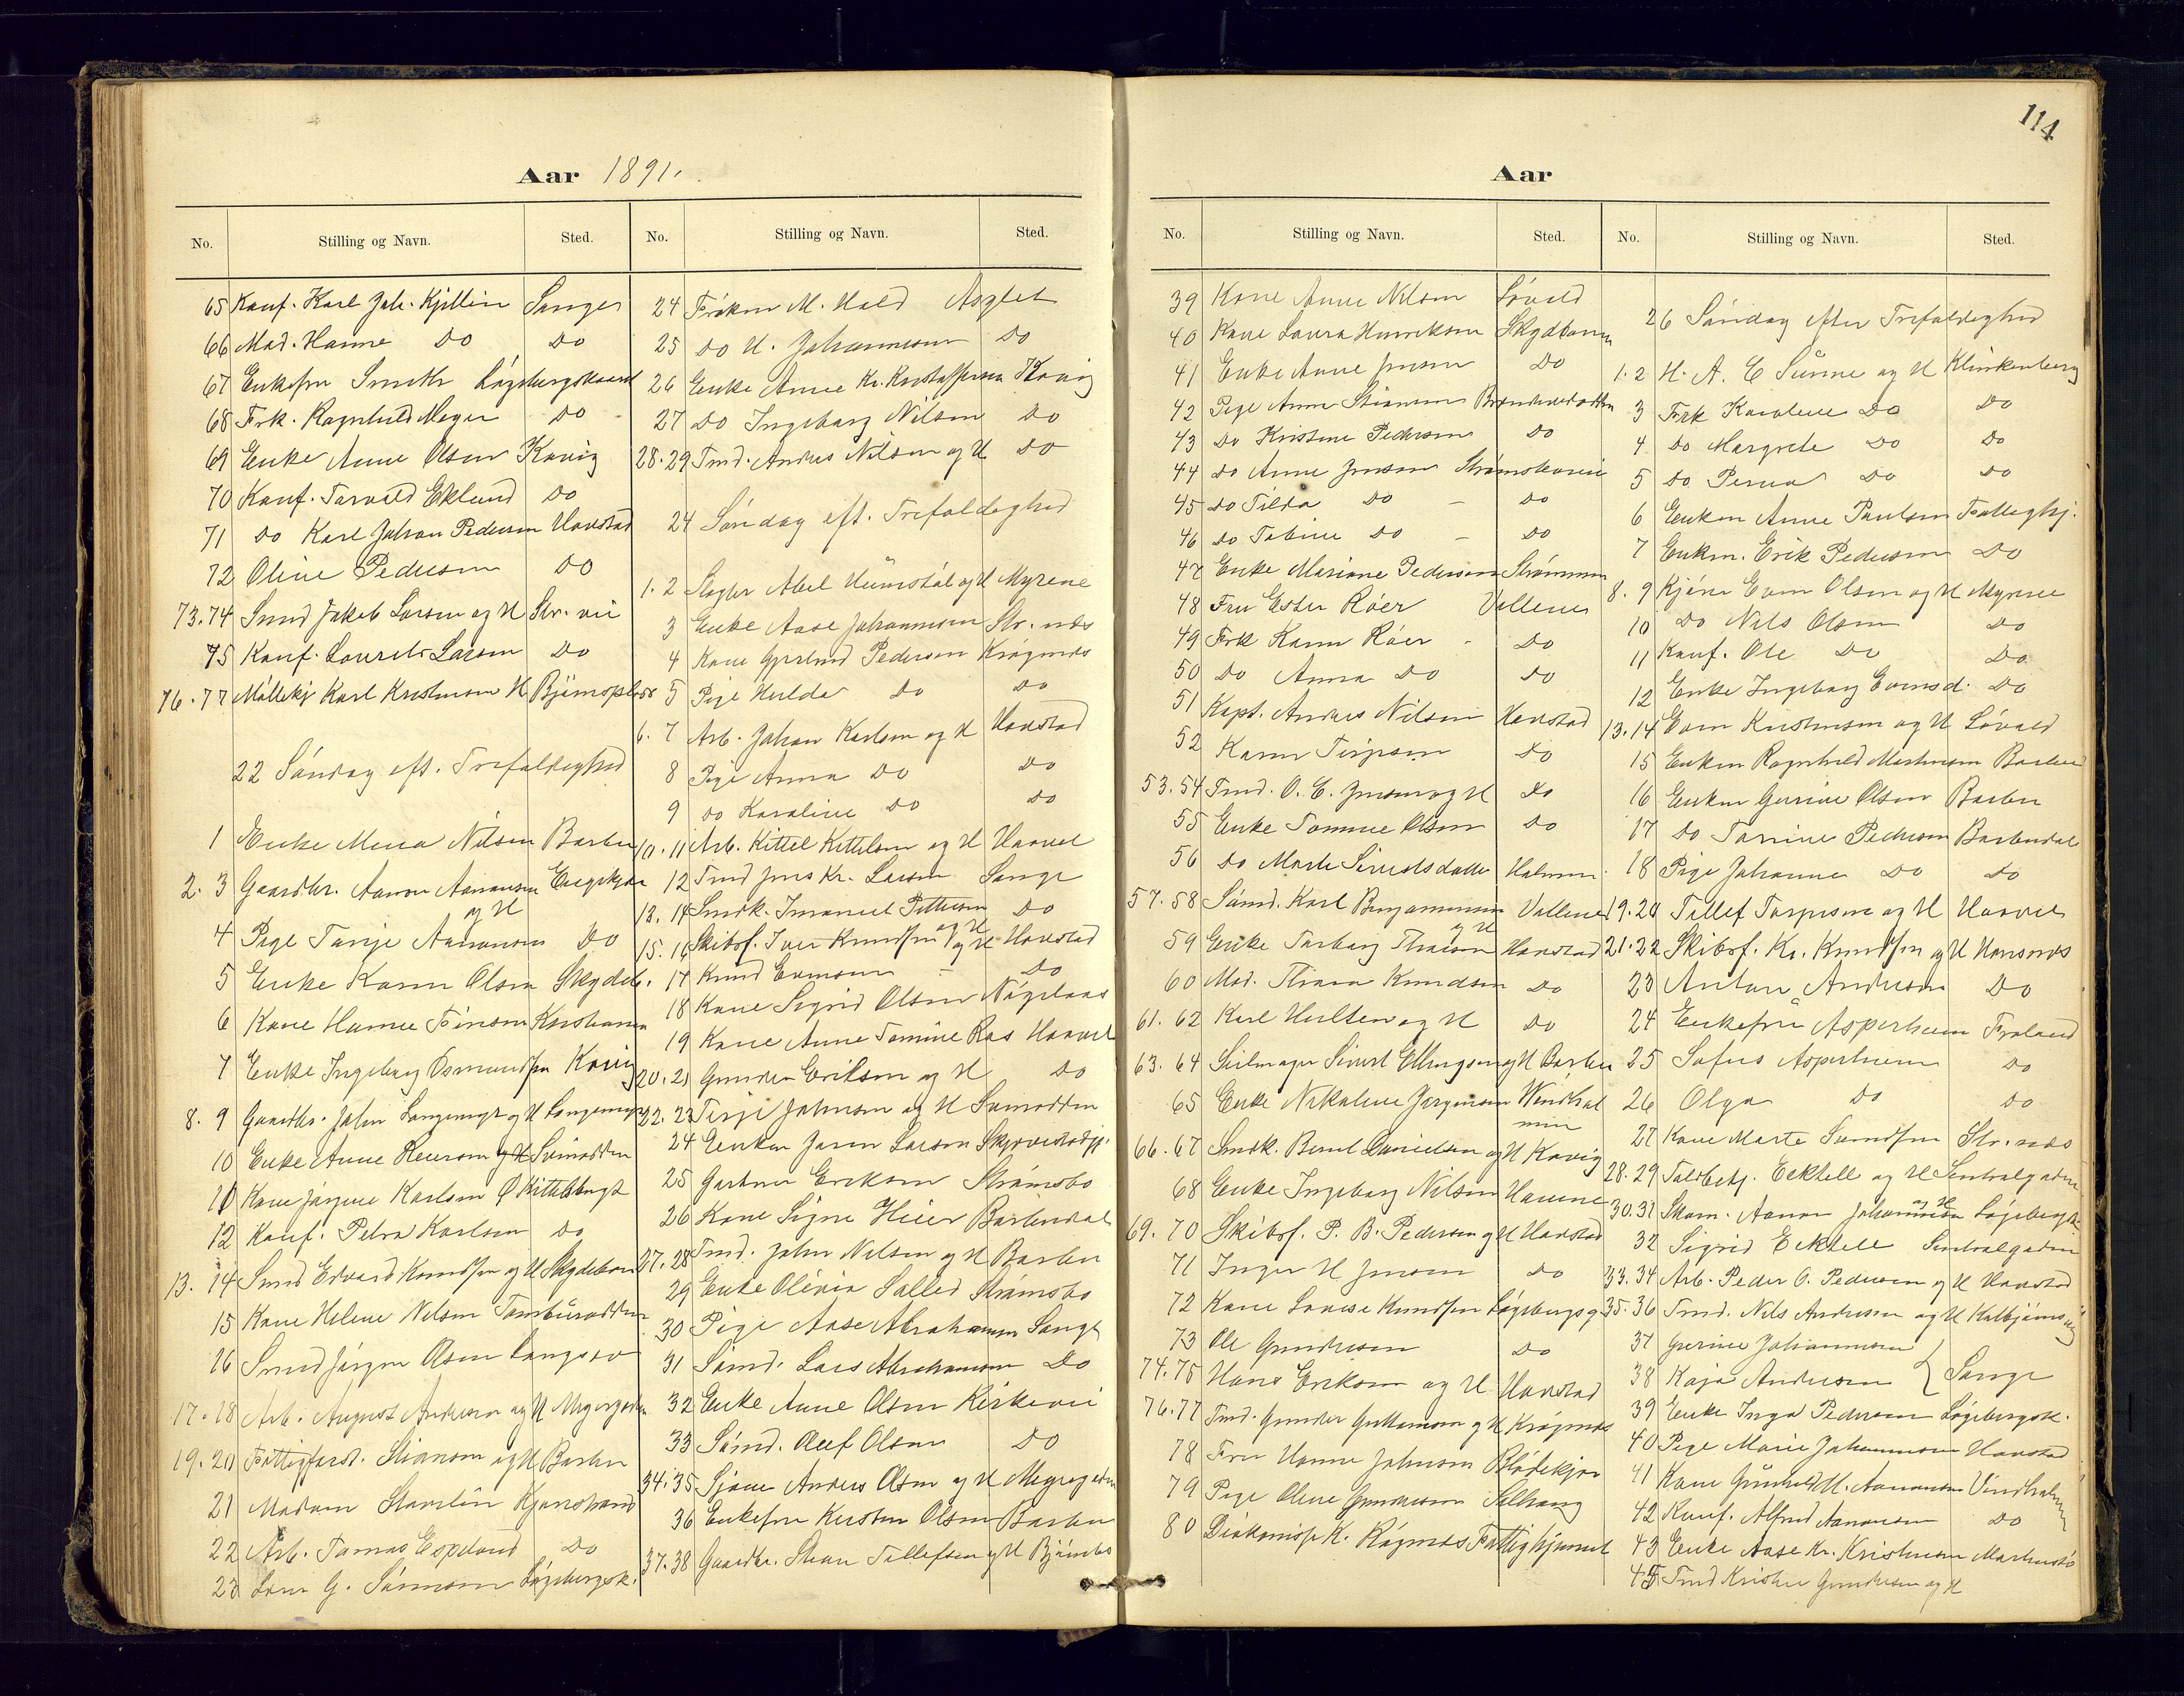 114
Aar 1891.
No. Stilling og Navn. Sted. No. Stilling og Navn. Sted.
65 Konf. Karl Joh. Kjellin Songe
66 Mad. Hanne Do Do
67 Enkefru Smith Løgebergskaard
68 Frk. Ragnhild Meyer Do
69 Enke Anne Olsen Kavig
70 Konf. Torvald Eklund Do
71 Do Karl Johan Pedersen Havstad
72 Oline Pedersen Do
73.74 Smed Jakob Larsen og H Str. vei
75 Konf. Lourets Larsen Do
76.77 Møllekj Karl Kristensen H
22 Søndag eft. Trefoldighed
1 Enke Mina Nilsen Barbu
2. 3 Gaardbr. Aanon Aanonsen og H Engekjær
4 Pige Tarje Aanonsen Do
5 Enke Karen Olsen Skydeb.
6 Kone Hanne
7 Enke Ingeborg Osmundsen Kavig
8. 9 Gaardbr. John Langemyr og H Langemyr
10 Enke Anne
11 Kone Jørgine Karlsen Ø Kittelsbugt
12 Konf. Petra Karlsen Do
13. 14 Smed Edvard Knudsen og H Skydebanen
15 Kone Helene Nilsen Tamburodden
16 Smed Jørgen Olsen Langsæv
17.18 Arb. August Andersen og H Myregaden
19.20 Stiansen og H Barbu
21 Madam Kjenstrand
22 Arb. Tomas Espeland Do
23 G. Sørensen Løgebergsk.
24 Frøken M. Hald Asylet
25 Do H. Johannesen Do
26 Enke Anne Kr. Kristoffersen Kavig
27 Do Ingeborg Nilsen Do
28.29 Tmd. Anders Nilsen og H Do
24 Søndag eft. Trefoldighed
1. 2 Slagter Abel og H Myrene
3 Enke Aase Johannesen Str. nes
4 Kone Pedersen Krøgenes
5 Pige Hulda Do Do
6. 7 Arb. Johan Karlsen og H Havstad
8 Pige Anna Do Do
9 Do Karoline Do Do
10. 11 Arb. Kittel Kittelsen og H Haavet
12 Tmd Jens Kr. Larsen Songe
13. 14 Smdk. Imanuel Pettersen og H Do
15. 16 Skibsf. Iver Knudsen og H Havstad
17 Knud Evensen - Do
18 Kone Sigrid Olsen Nøgelaas
19 Kone Anne Tomine Ras Haavet
20.21 Gunder Eriksen og H Do
22. 23 Terje Johnsen og H Svinodden
24 Enken Larsen
25 Gartner Eriksen Strømsbo
26 Kone Signe Heier Barbudal
27.28 Tmd. John Nilsen og H Barbu
29 Enke Olivia Salled Strømsbo
30 Pige Aase Abrahamsen Songe
31 Sømd. Lars Abrahamsen Do
32 Enke Anne Olsen Kirkevei
33 Sømd. Oluf Olsen Do
34.35 Anders Olsen og H Myregaden
36 Enkefru Kirsten Olsen Barbu
37.38 Gaardbr. Stian Tellefsen og H Bjørnebo
Aar
No. Stilling og Navn. Sted. No. Stilling og Navn. Sted.
39 Kone Anne Nilsen Løvold
40 Kone Laura Henriksen Skydebanen
41 Enke Anne Jensen Do
42 Pige Anne Stiansen
43 Do Kristine Pedersen Do
44 Do Anne Jensen
45 Do Tilda Do - Do
46 Do Tobine Do - Do
47 Enke Mariane Pedersen Strømmen
48 Fru Ester Røer Vollene
49 Frk Karen Røer - Do
50 Do Anna Do Do
51 Kapt. Anders Nilsen Havstad
52 Karen Terjesen Do
53.54 Tmd. O. C. Jensen og H Do
55 Enke Tomine Olsen Do
56 Do Marte Sivertsdatter Holmen
57.58 Sømd. Karl Benjaminsen og H Vollene
59 Enke Torborg Havstad
60 Mad. Knudsen Do
61. 62 Karl Hulten og H Do
63. 64 Seilmager Sivert Ellingsen og H Barbu
65 Enke Nikoline Jørgensen Windholmen
66.67 Smdk. Bernt Danielsen og H Kavig
68 Enke Ingeborg Nilsen Havene
69. 70 Skibsf. P. B. Pedersen og H Havstad
71 Inger H Jensen Do
72 Kone Lovise Knudsen Løgebergsg.
73 Ole Gundersen Do
74.75 Hans Eriksen og H Havstad
76.77 Tmd. Gunder Guttormsen og H Krøgenes
78 Fru Hanne Johnsen Blødekjær
79 Pige Oline Gundersen
80 K. Røgenes Fattighjemmet
26 Søndag efter Trefoldighed
1. 2 H. A. C Sünne og H Klinkenberg
3 Frk Karoline Do Do
4 Do Margrete Do Do
5 Do Do Do
6 Enken Anne Paulsen Fattighj.
7 Enkm. Erik Pedersen Do
8. 9 Kjøre Even Olsen og H Myrene
10 Do Nils Olsen Do
11 Konf. Ole Do Do
12 Enke Ingeborg Evensd. Do
13.14 Even Kristensen og H Løvold
15 Enken Ragnhild Mortensen Barbu
16 Enken Gurine Olsen Barbu
17 Do Tomine Pedersen Barbudal
18 Pige Johanne Do Do
19.20 Tellef Torjesen og H Haavet
21.22 Skibsf. Kr. Knudsen og H
23 Anton Andersen Do
24 Enkefru Asperheim Froland
25 Sofus Asperheim Do
26 Olga Do Do
27 Kone Marte Str. nes
28.29 Toldbetj. Ecktell og H Sentralgaden
30.31 Skom. Aanon Johannesen og H Løgebergsk
32 Sigrid Ecktell Sentralgaden
33.34 Arb. Peder O. Pedersen og H Havstad
35.36 Tmd. Nils Andersen og H
37 Gurine Johannesen
38 Kaja Andersen } Songe
39 Enke Inga Pedersen Løgebergsk.
40 Pige Marie Johannesen Havstad
41 Kone Gunhild M. Aanonsen Vindholmen
42 Konf. Alfred Aanonsen Do
43 Enke Aase Kr. Kristensen
45 Tmd Krister Gundersen og H